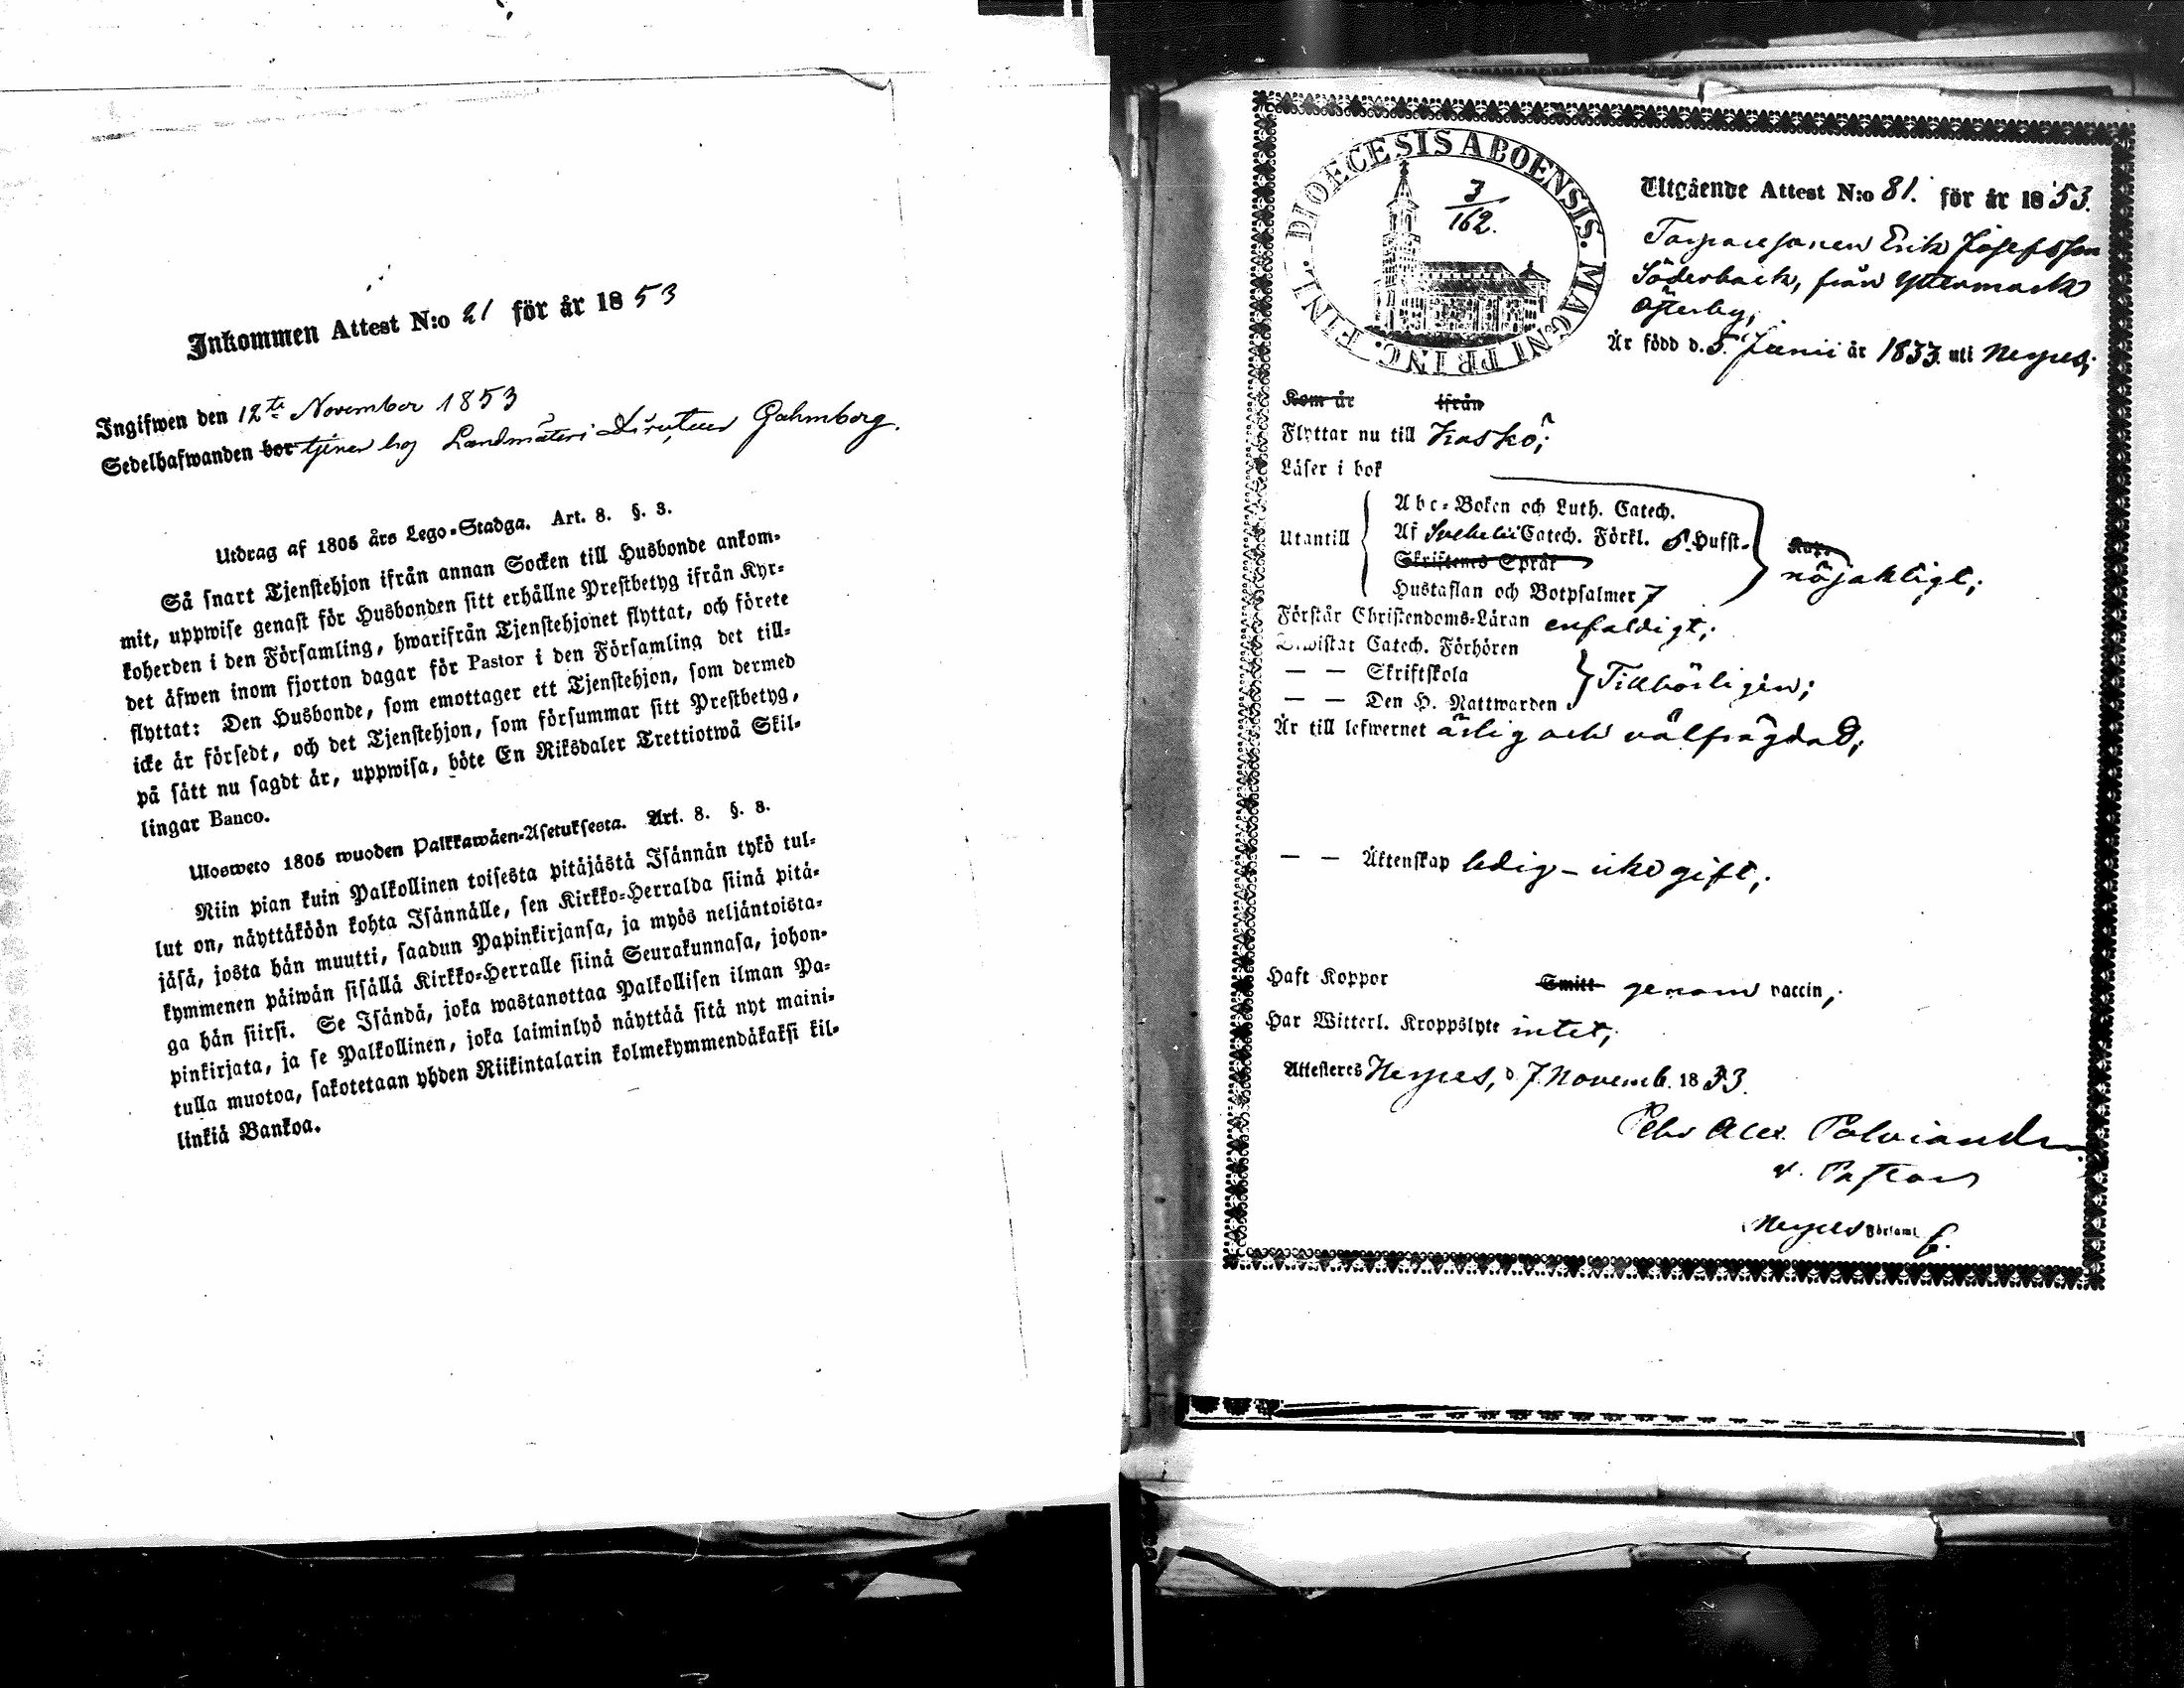 Inkommen Attest N:o 21 för år 1853
Ingifwen den 12te November 1853
Sedelhafwanden bor tjener hos Landmäteri Direkteur Gahmborg.
Utdrag af 1805 års Lego-Stadga. Art. 8. §. 3.
Så snart Tjenstehjon ifrån annan Socken till Husbonde ankom-
mit, uppwise genast för Husbonden sitt erhållne Prestbetyg ifrån Kyr-
koherden i den Församling, hwarifrån Tjenstehjonet flyttat, och förete
det äfwen inom fjorton dagar för Pastor i den Församling det till-
flyttat: Den Husbonde, som emottager ett Tjenstehjon, som dermed
icke är försedt, och det Tjenstehjon, som försummar sitt Prestbetyg,
på sätt nu sagdt är, uppwisa, böte En Riksdaler Trettiotwå Skil-
lingar Banco.
Ulosweto 1805 wuoden Palkkawäen-Asetuksesta. Art. 8. §. 3.
Niin pian kuin Palkollinen toisesta pitäjästä Isännän tykö tul-
lut on, näyttäköön kohta Isännälle, sen Kirkko-Herralda siinä pitä-
jäsä, josta hän muutti, saadun Papinkirjansa, ja myös neljäntoista-
kymmenen päiwän sisällä Kirkko-Herralle siinä Seurakunnasa, johon-
ga hän siirsi. Se Isändä, joka wastanottaa Palkollisen ilman Pa-
pinkirjata, ja se Palkollinen, joka laiminlyö näyttää sitä nyt maini-
tulla muotoa, sakotetaan yhden Riikintalarin kolmekymmendäkaksi kil-
linkiä Bankoa.
DIOECESIS ABOENSIS. MAGNI PRINC. FINL.
3/162.
Utgående Attest N:o 81. för år 1853.
Torparesonen Erik Josefsson
Söderback, från Yttermark
Österby,
Är född d. 5. Junii år 1833. uti Nerpes;
Kom år ifrån
Flyttar nu till Kaskö;
Läser i bok
Abc-Boken och Luth. Catech.
Utantill Af Svebelii Catech. Förkl. Hufst.
Skriftenes Språk
nöjaktigt;
Hustaflan och Botpsalmer 7
Förstår Christendoms-Läran enfaldigt;
Bewistat Catech. Förhören
— — Skriftskola Tillbörligen;
— — Den H. Nattwarden
Är till lefwernet ärlig och välfrägdad;
— — Äktenskap ledig – icke gift;
Haft Koppor Smitt genom vaccin;
Har Witterl. Kroppslyte intet;
Attesteres Nerpes, d. 7. Novemb. 1853.
Petr Alex. Polviander
v. Pastor
Nerpes Församl.